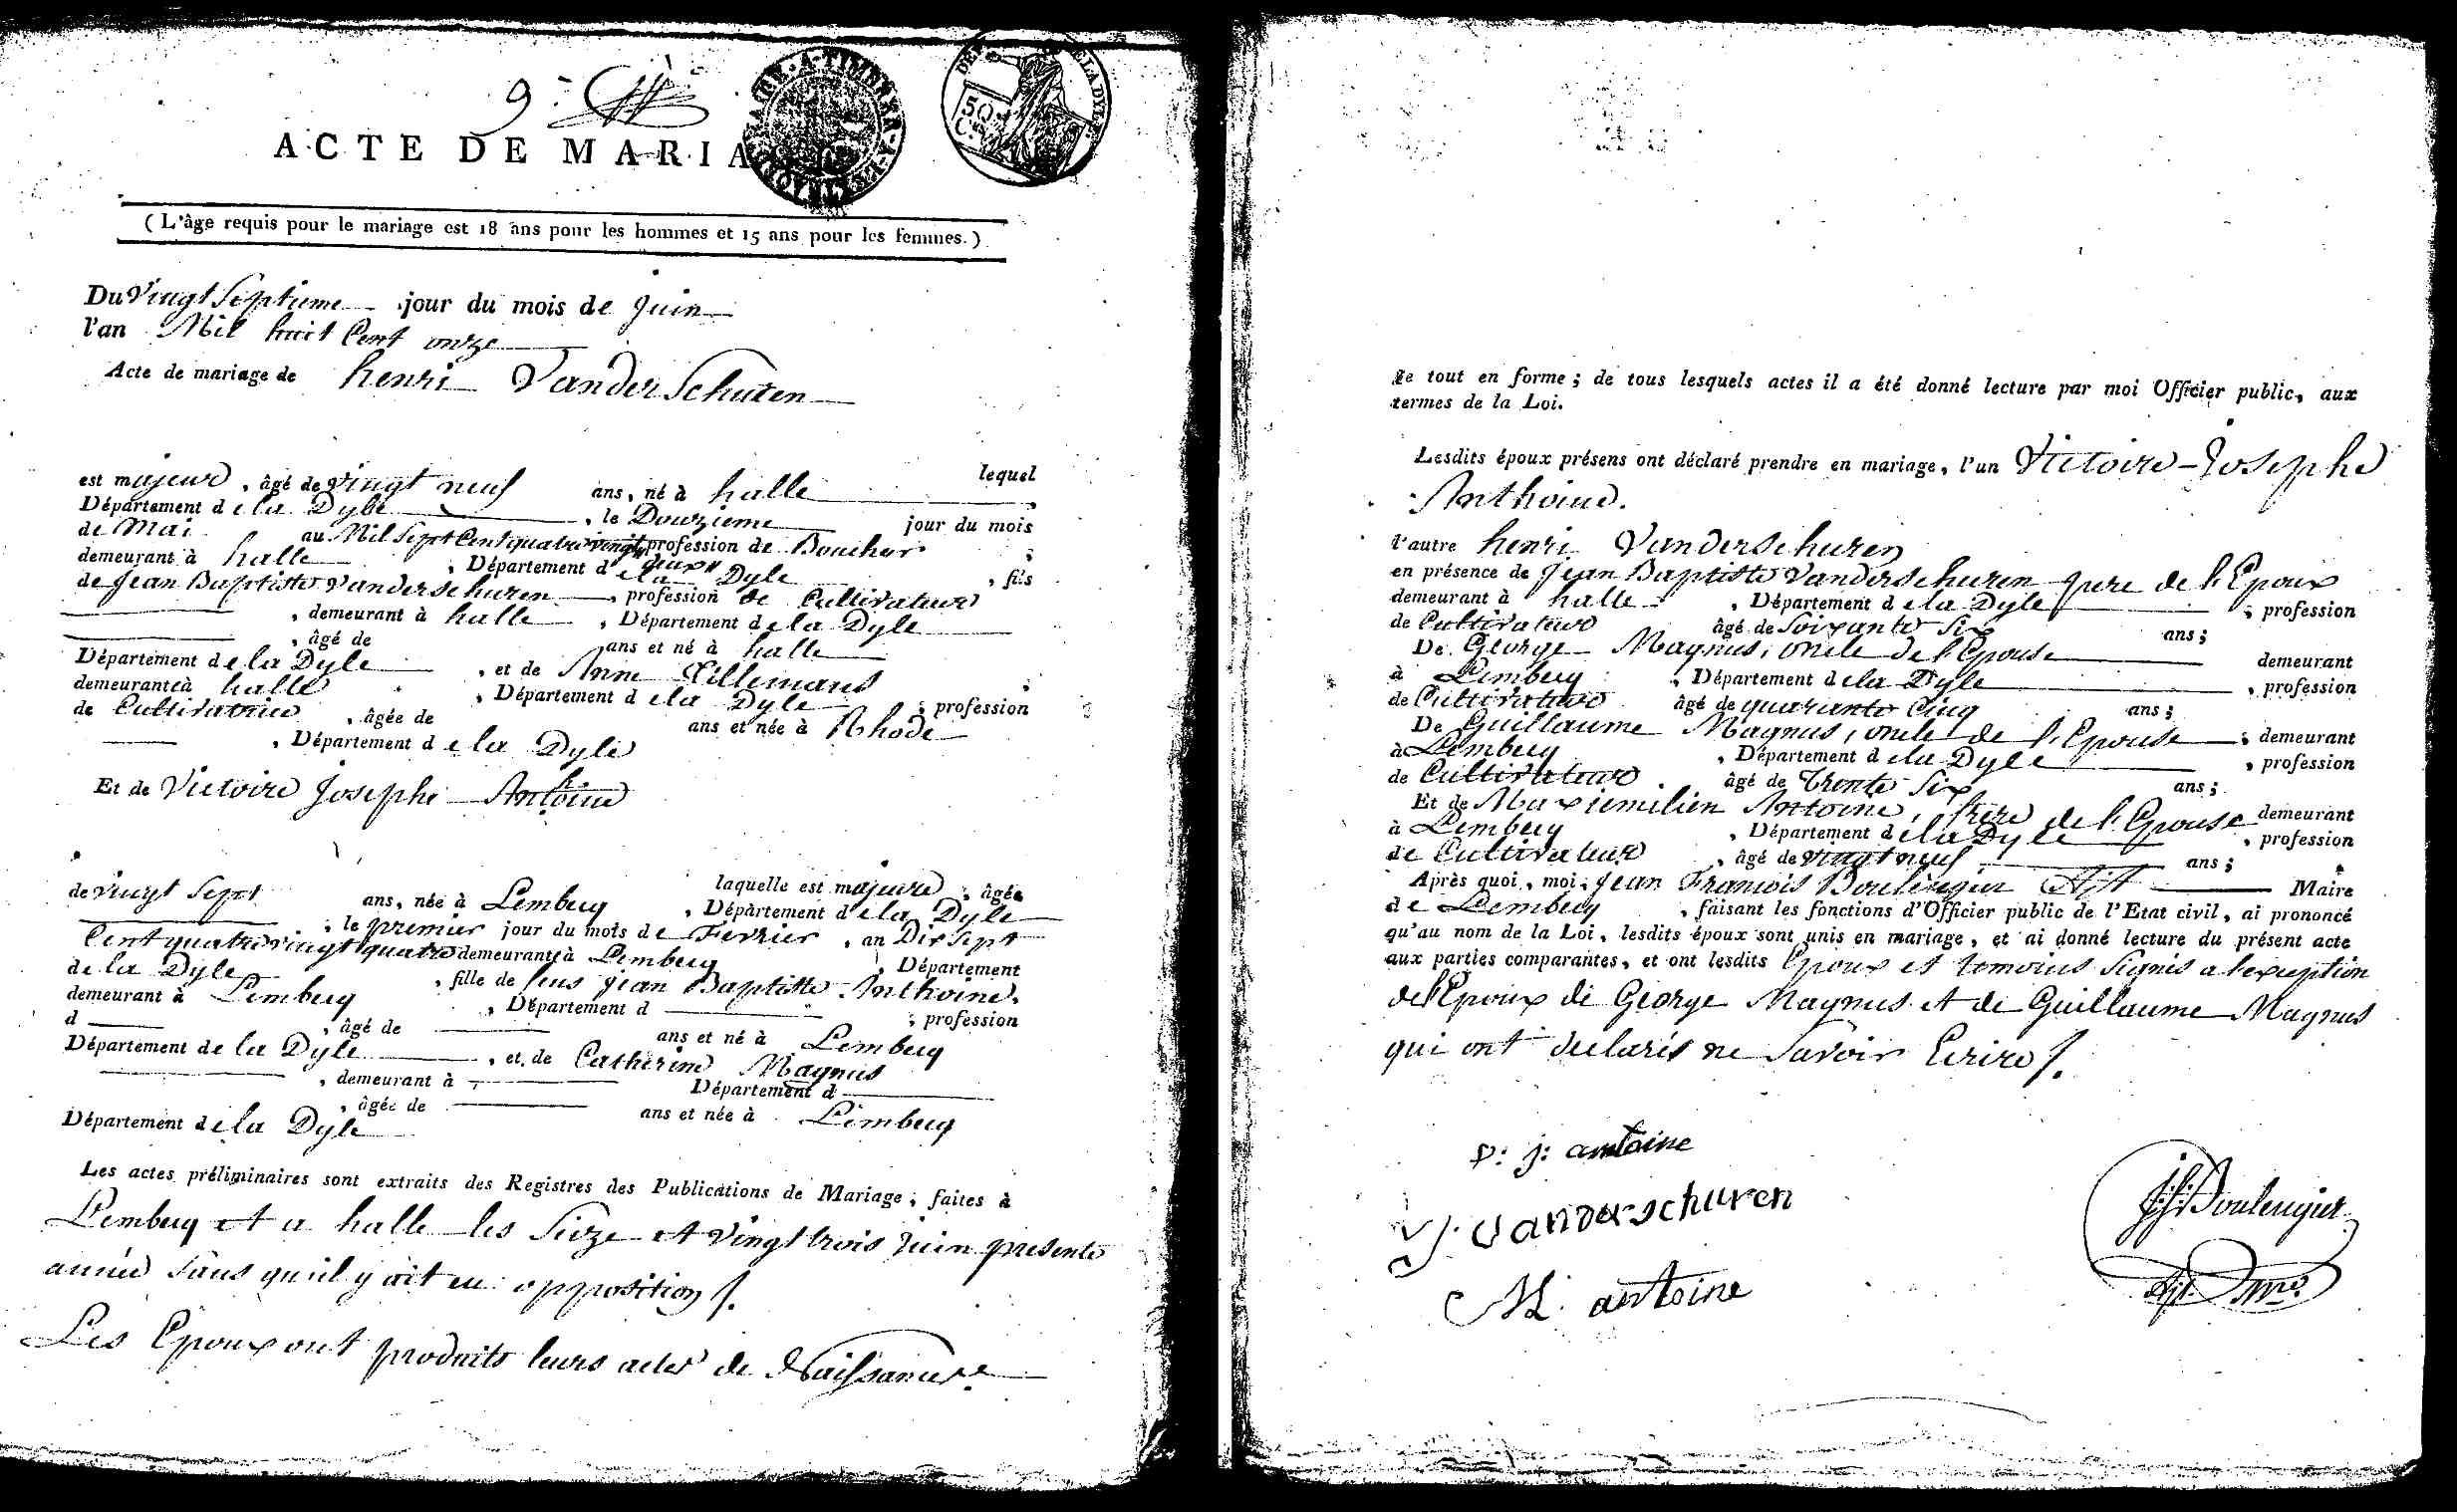 9.
ACTE DE MARIA
50
C.
DE LA DYLE
(L'âge requis pour le mariage est 18 ans pour les hommes et 15 ans pour les femmes.)
Du Vingt Septieme jour du mois de Juin
l'an Mil huit Cent onze
Acte de mariage de henri Vander Schuren
lequel
est majeur, âgé de vingt neuf ans, né à halle
Département de la Dyle, le Douzieme jour du mois
de Mai au Mil Sept Cent quatre vingt deux profession de Boucher
demeurant à halle, Département de la Dyle, fils
de Jean Baptiste Vanderschuren, profession de Cultivateur
, demeurant à halle, Département de la Dyle
, âgé de ans et né à halle
Département de la Dyle, et de Anne Tillemans
demeurante à halle, Département de la Dyle, profession
de Cultivatrice, âgée de ans et née à Rhode
, Département de la Dyle
Et de Victoire Josephe Anthoine
laquelle est majeure, âgée
de vingt sept ans, née à Lembecq, Département de la Dyle
, le premier jour du mois de Fevrier, an Dix Sept
Cent quatre vingt quatre demeurante à Lembecq, Département
de la Dyle, fille de feus Jean Baptiste Anthoine,
demeurant à Lembecq, Département d , profession
d , âgé de ans et né à Lembecq
Département de la Dyle, et de Catherine Magnus
, demeurant à Département d
, âgée de ans et née à Lembecq
Département de la Dyle
Les actes préliminaires sont extraits des Registres des Publications de Mariage, faites à
Lembecq et a halle les Seize et vingt trois Juin presente
année sans qu'il y ait eu opposition /.
Les Epoux ont produits leurs actes de Naissance
le tout en forme; de tous lesquels actes il a été donné lecture par moi Officier public, aux
termes de la Loi.
Lesdits époux présens ont déclaré prendre en mariage, l'un Victoire-Josephe
Anthoine.
l'autre henri Vanderschuren
en présence de Jean Baptiste Vanderschuren pere de l'Epoux
demeurant à halle, Département de la Dyle, profession
de Cultivateur âgé de Soixante Six ans;
De George Magnus, oncle de l'Epouse demeurant
à Lembecq, Département de la Dyle, profession
de Cultivateur âgé de quarante Cinq ans;
De Guillaume Magnus, oncle de l'Epouse; demeurant
à Lembecq, Département de la Dyle, profession
de Cultivateur âgé de Trente Six ans;
Et de Maxiemilien Antoine, frere de l'Epouse demeurant
à Lembecq, Département de la Dyle, profession
de Cultivateur, âgé de vingt neuf ans;
Après quoi, moi, Jean Francois Boulengier Ajt Maire
de Lembecq, faisant les fonctions d'Officier public de l'Etat civil, ai prononcé
qu'au nom de la Loi, lesdits époux sont unis en mariage, et ai donné lecture du présent acte
aux parties comparantes, et ont lesdits Epoux et temoins signés a l'exception
de l'Epoux de George Magnus et de Guillaume Magnus
qui ont declarés ne savoir Ecrire /.
v: j: antoine
J. vanderschuren
M. antoine
J:f: Boulengier
Ajt. Mre.